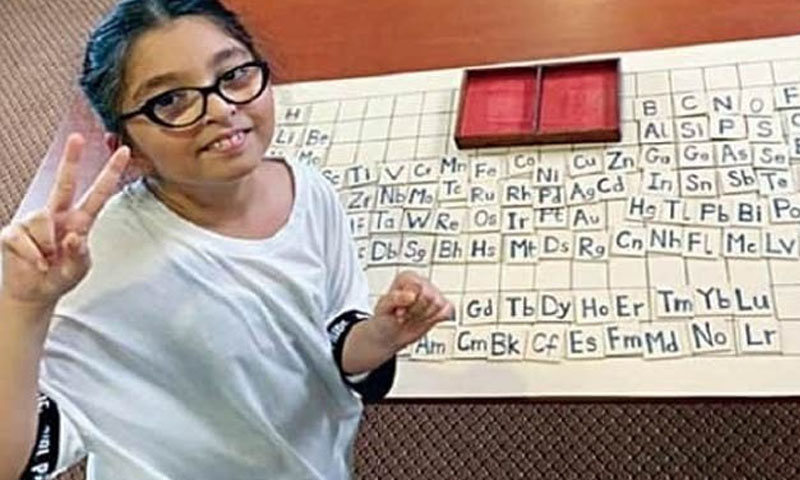 H B C N O F
Li Be Al Si P S
Sc Ti V Cr Mn Fe Co Ni Cu Zn Ga Ge As Se
Zr Nb Mo Tc Ru Rh Pd Ag Cd In Sn Sb Te
Ta W Re Os Ir Pt Au Hg Tl Pb Bi Po
Db Sg Bh Hs Mt Ds Rg Cn Nh Fl Mc Lv
Gd Tb Dy Ho Er Tm Yb Lu
Am Cm Bk Cf Es Fm Md No Lr